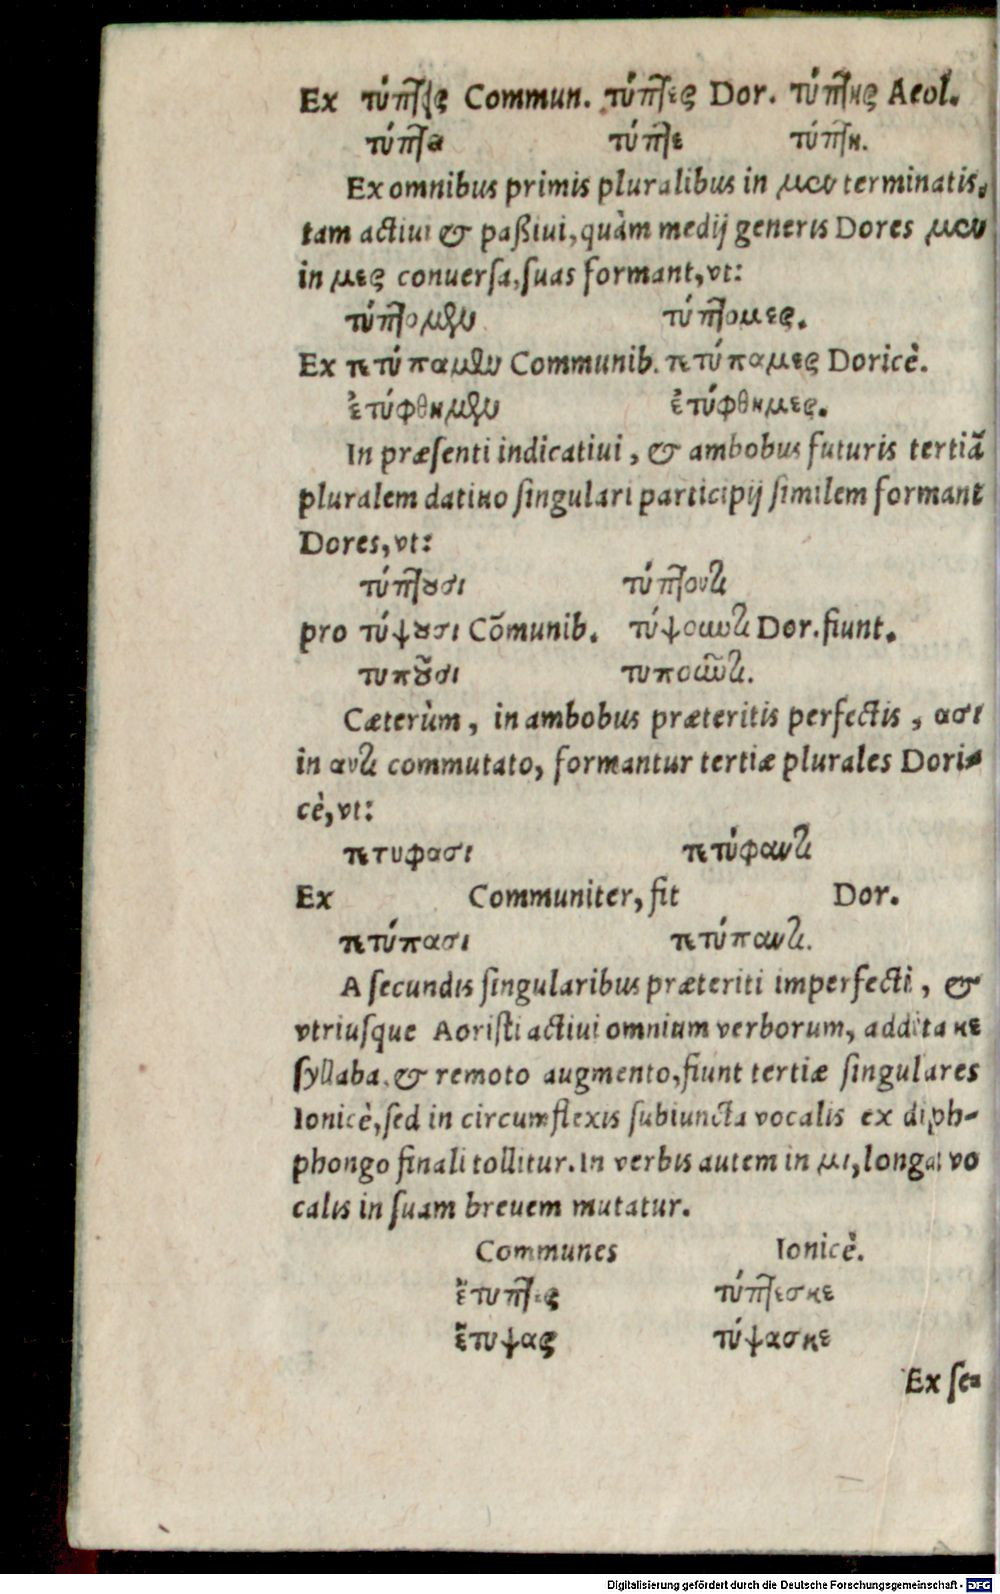 Ex τύπτεις Commun. τύπτες Dor. τύπτης Aeol.
τύπτει τύπτε τύπτη.
Ex omnibus primis pluralibus in μεν terminatis,
tam actiui & paßiui, quàm medij generis Dores μεν
in μες conuersa, suas formant, vt:
τύπτομεν τύπτομες.
Ex τετύπαμεν Communib. τετύπαμες Doricè.
ἐτύφθημεν ἐτύφθημες.
In præsenti indicatiui, & ambobus futuris tertiã
pluralem datiuo singulari participij similem formant
Dores, vt:
τύπτουσι τύπτοντι
pro τύψουσι Cõmunib. τύψοντι Dor. fiunt.
τυποῦσι τυποῦντι.
Cæterùm, in ambobus præteritis perfectis, ασι
in αντι commutato, formantur tertiæ plurales Dori-
cè, vt:
τετυφασι τετύφαντι
Ex Communiter, fit Dor.
τετύπασι τετύπαντι.
A secundis singularibus præteriti imperfecti, &
vtriusque Aoristi actiui omnium verborum, addita κε
syllaba, & remoto augmento, fiunt tertiæ singulares
Ionicè, sed in circumflexis subiuncta vocalis ex diph-
phongo finali tollitur. In verbis autem in μι, longa vo
calis in suam breuem mutatur.
Communes Ionicè.
ἔτυπτες τύπτεσκε
ἔτυψας τύψασκε
Ex se-
Digitalisierung gefördert durch die Deutsche Forschungsgemeinschaft - DFG